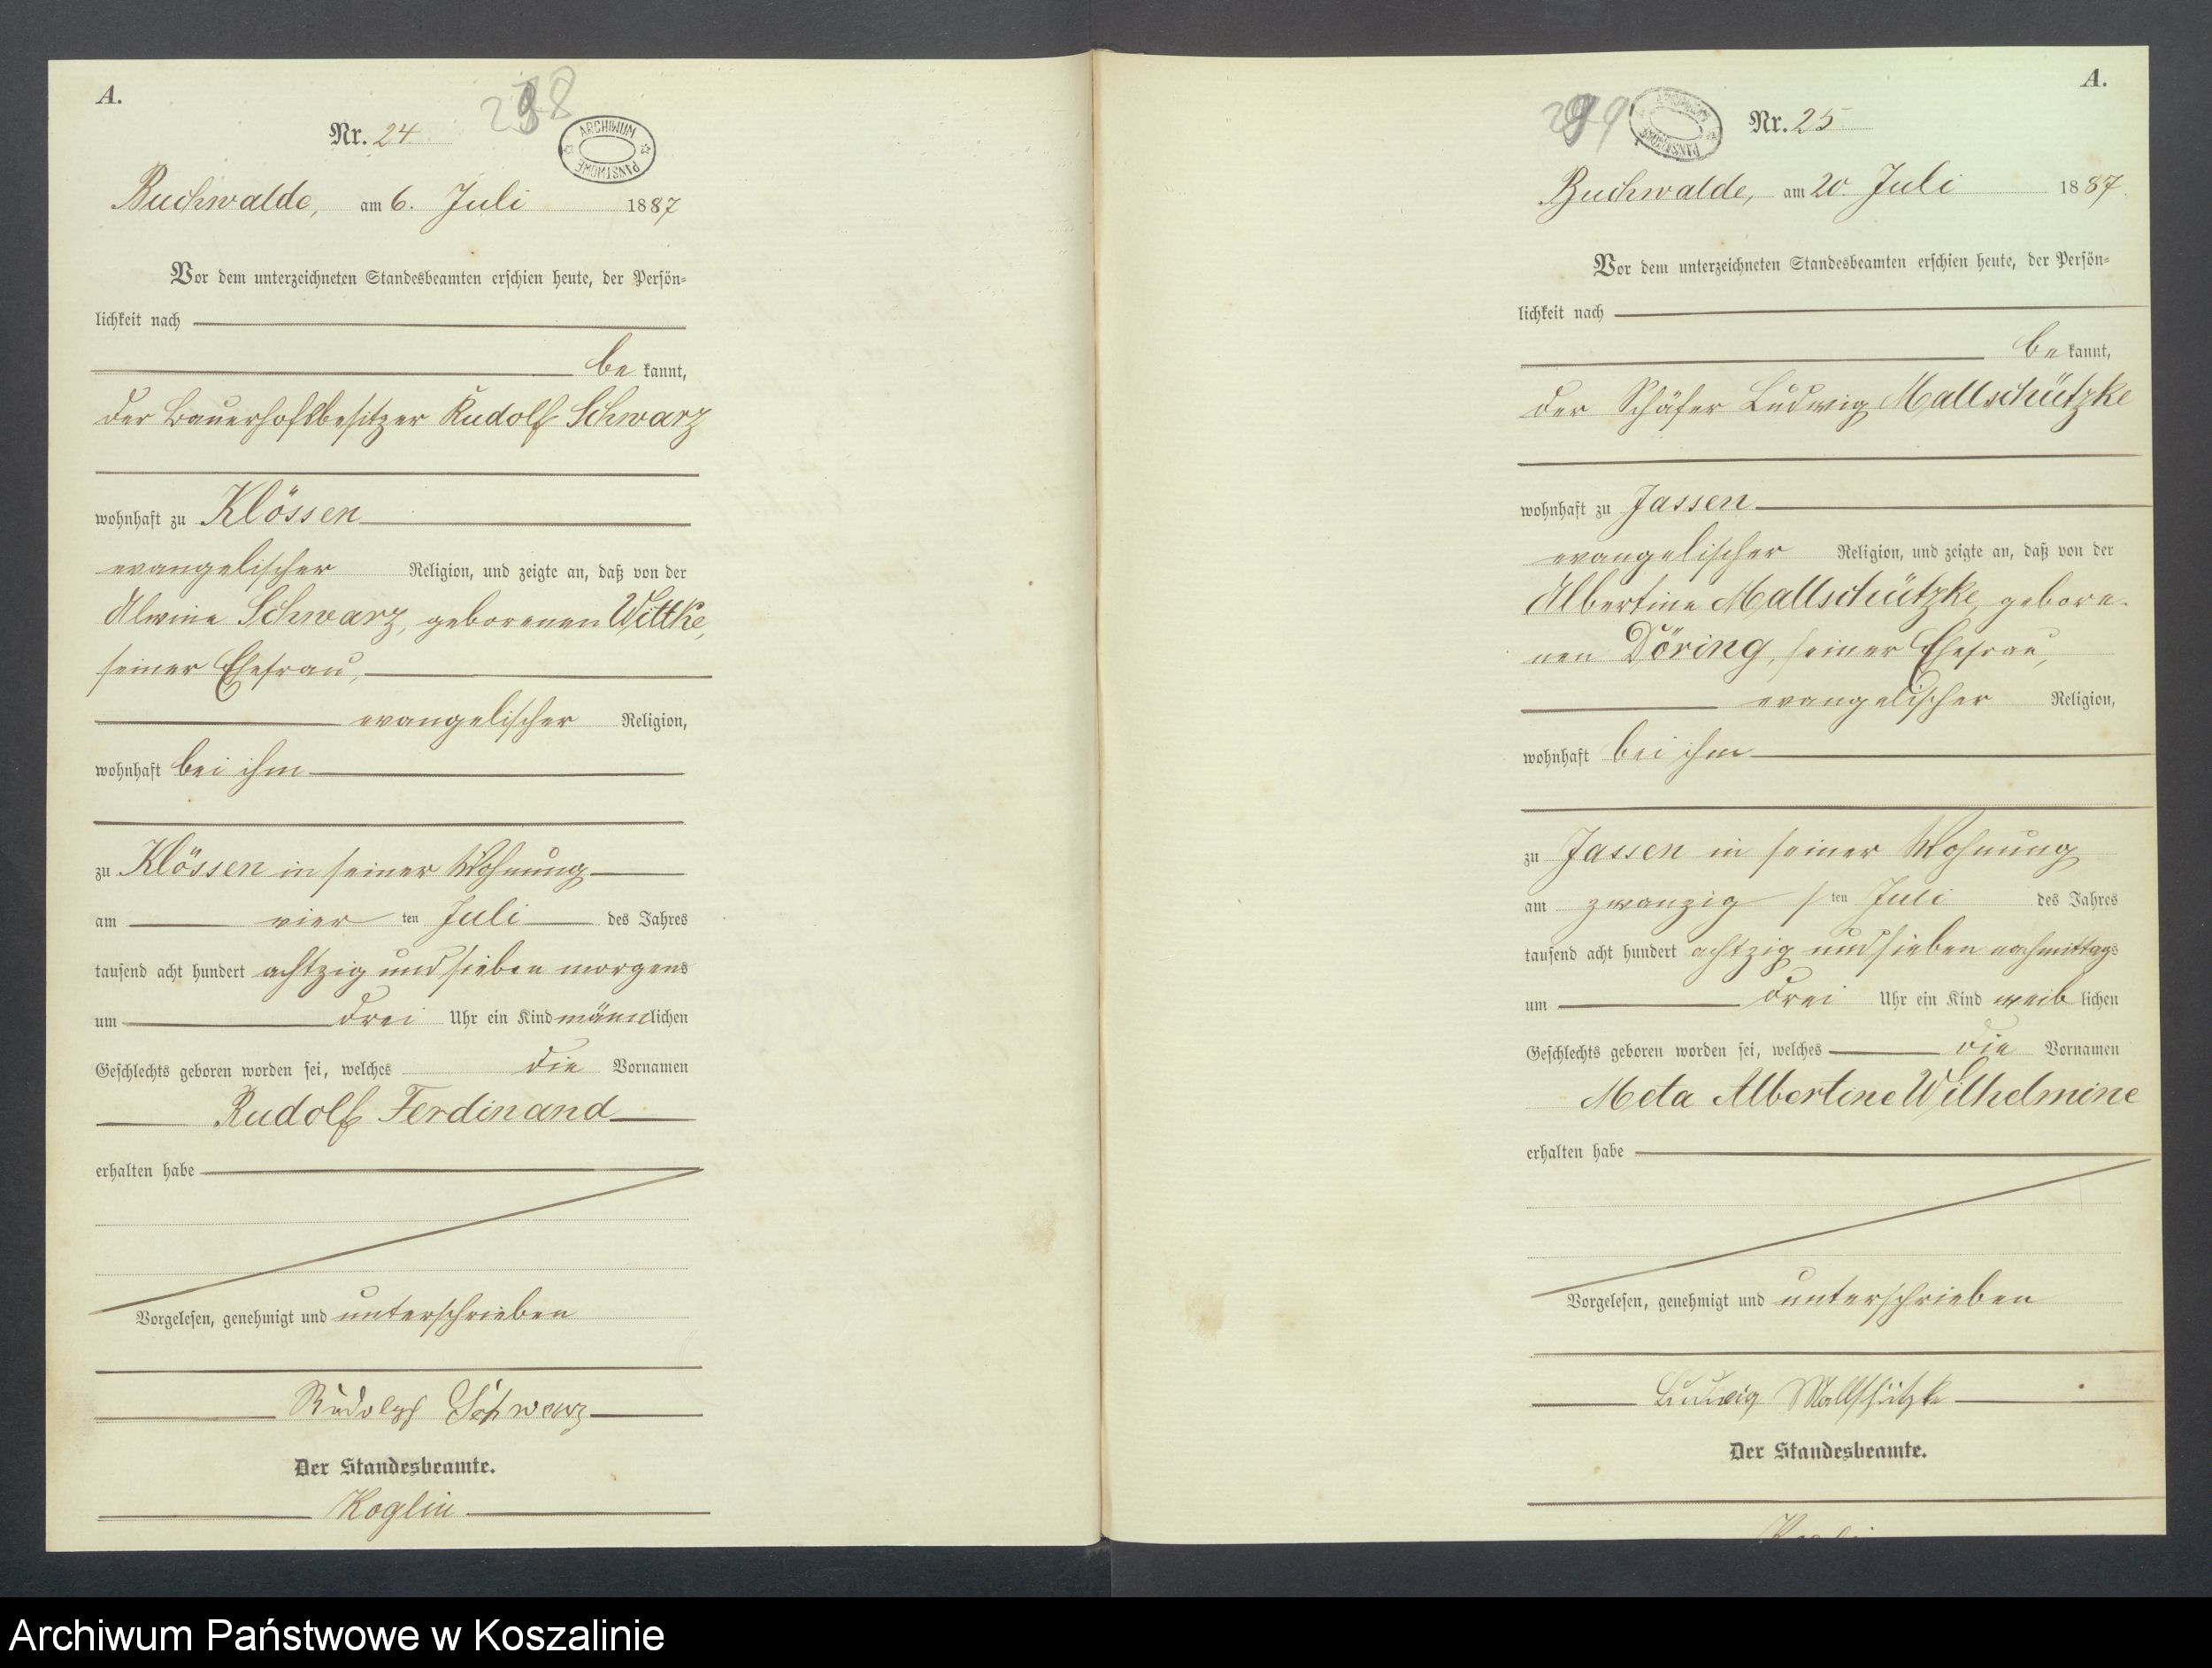 A.
Nr. 24
ARCHIWUM PAŃSTWOWE
Buchwalde, am 6. Juli 1887
Vor dem unterzeichneten Standesbeamten erschien heute, der Persön-
lichkeit nach
be kannt,
der Bauerhofsbesitzer Rudolf Schwarz
wohnhaft zu Klössen
evangelischer Religion, und zeigte an, daß von der
Alwine Schwarz, geborenen Wittke,
seiner Ehefrau,
evangelischer Religion,
wohnhaft bei ihm
zu Klössen in seiner Wohnung
am vier ten Juli des Jahres
tausend acht hundert achtzig und sieben morgens
um drei Uhr ein Kind männlichen
Geschlechts geboren worden sei, welches die Vornamen
Rudolf Ferdinand
erhalten habe
Vorgelesen, genehmigt und unterschrieben
Rudolph Schwarz
Der Standesbeamte.
Koglin
A.
ARCHIWUM PAŃSTWOWE
Nr. 25
Buchwalde, am 20. Juli 1887.
Vor dem unterzeichneten Standesbeamten erschien heute, der Persön-
lichkeit nach
be kannt,
der Schäfer Ludwig Mallschützke
wohnhaft zu Jassen
evangelischer Religion, und zeigte an, daß von der
Albertine Mallschützke, gebore-
nen Döring, seiner Ehefrau,
evangelischer Religion,
wohnhaft bei ihm
zu Jassen in seiner Wohnung
am zwanzig s ten Juli des Jahres
tausend acht hundert achtzig und sieben nachmittags
um drei Uhr ein Kind weib lichen
Geschlechts geboren worden sei, welches die Vornamen
Meta Albertine Wilhelmine
erhalten habe
Vorgelesen, genehmigt und unterschrieben
Ludwig Mallschützke
Der Standesbeamte.
Archiwum Państwowe w Koszalinie